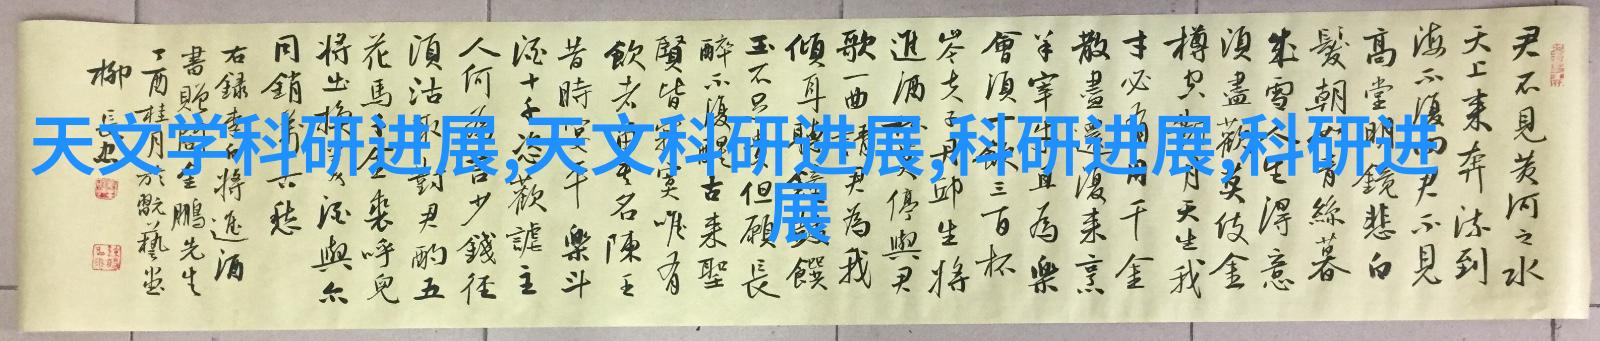 君不見黃河之水
天上來奔流到
海不復回君不見
高堂明鏡悲白
髮朝如青絲暮
成雪人生得意
須盡歡莫使金
樽空對月天生我
才必有用千金
散盡還復來烹
羊宰牛且為樂
會須一飲三百杯
岑夫子丹邱生將
進酒君莫停與君
歌一曲請君為我
傾耳聽鐘鼓饌
玉不足貴但願長
醉不復醒古來聖
賢皆寂寞唯有
飲者留其名陳王
昔時宴平樂斗
酒十千恣歡謔主
人何為言少錢徑
須沽取對君酌五
花馬千金裘呼兒
將出換美酒與尔
同銷萬古愁
右録李白將進酒
書贈金鵬先生
丁酉桂月於翫藝堂
柳長忠
天文学科研进展,天文科研进展,科研进展,科研进
展